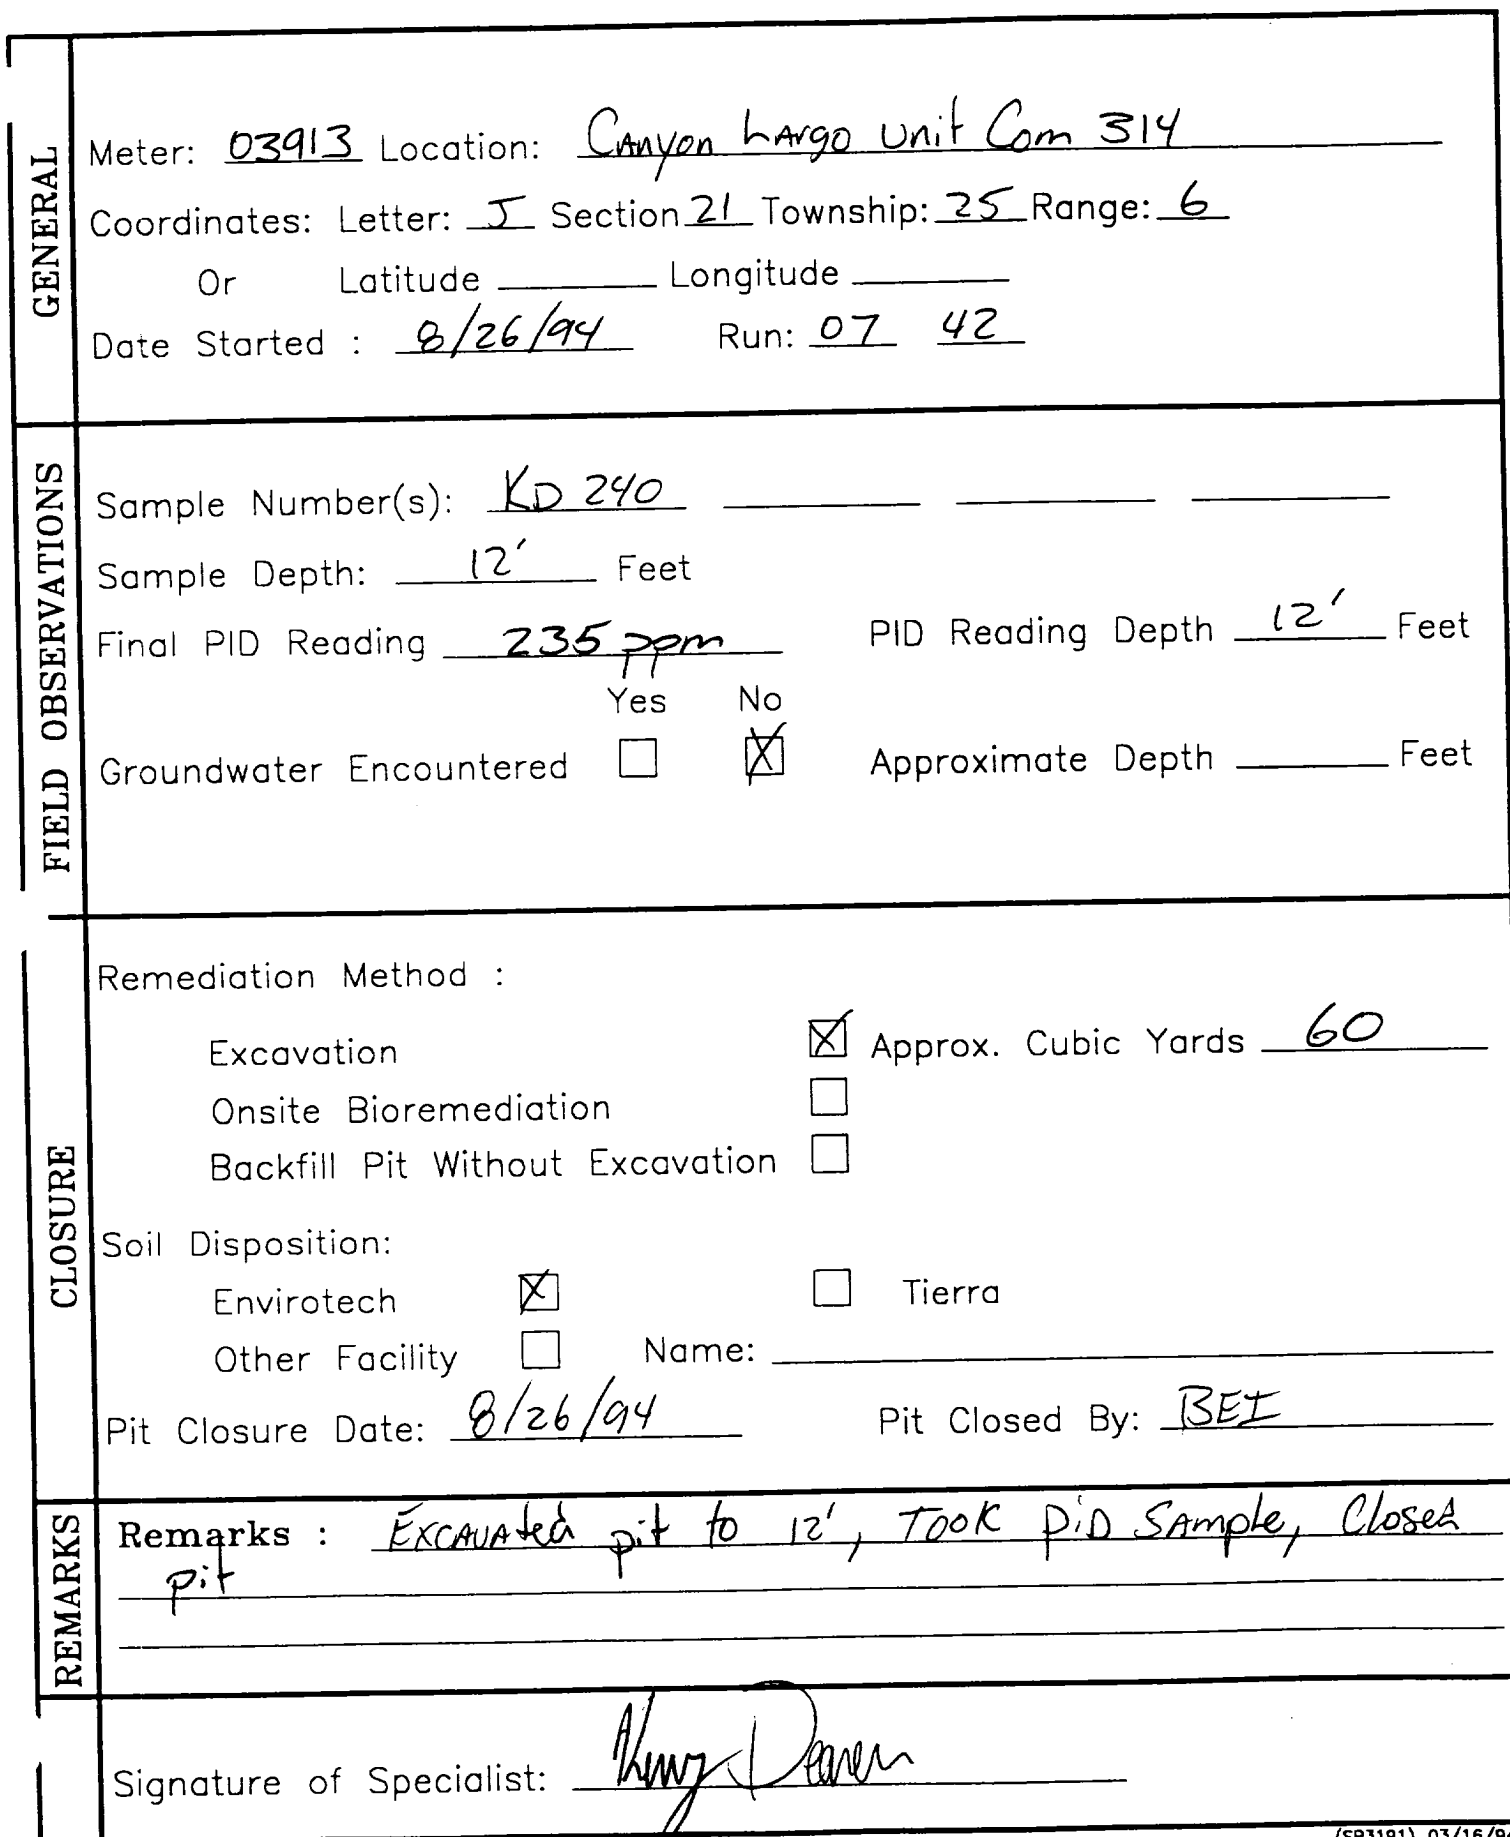 GENERAL
Meter: 03913 Location: Canyon Largo Unit Com 314
Coordinates: Letter: J Section 21 Township: 25 Range: 6
Or Latitude Longitude
Date Started : 8/26/94 Run: 07 42
FIELD OBSERVATIONS
Sample Number(s): KD 240
Sample Depth: 12' Feet
Final PID Reading 235 ppm PID Reading Depth 12' Feet
Yes No
Groundwater Encountered ☐ ☒ Approximate Depth Feet
CLOSURE
Remediation Method :
Excavation ☒ Approx. Cubic Yards 60
Onsite Bioremediation ☐
Backfill Pit Without Excavation ☐
Soil Disposition:
Envirotech ☒ ☐ Tierra
Other Facility ☐ Name:
Pit Closure Date: 8/26/94 Pit Closed By: BEI
REMARKS
Remarks : Excavated pit to 12', Took PiD Sample, Closed
pit
Signature of Specialist: Kelly
(SP3191) 03/16/94